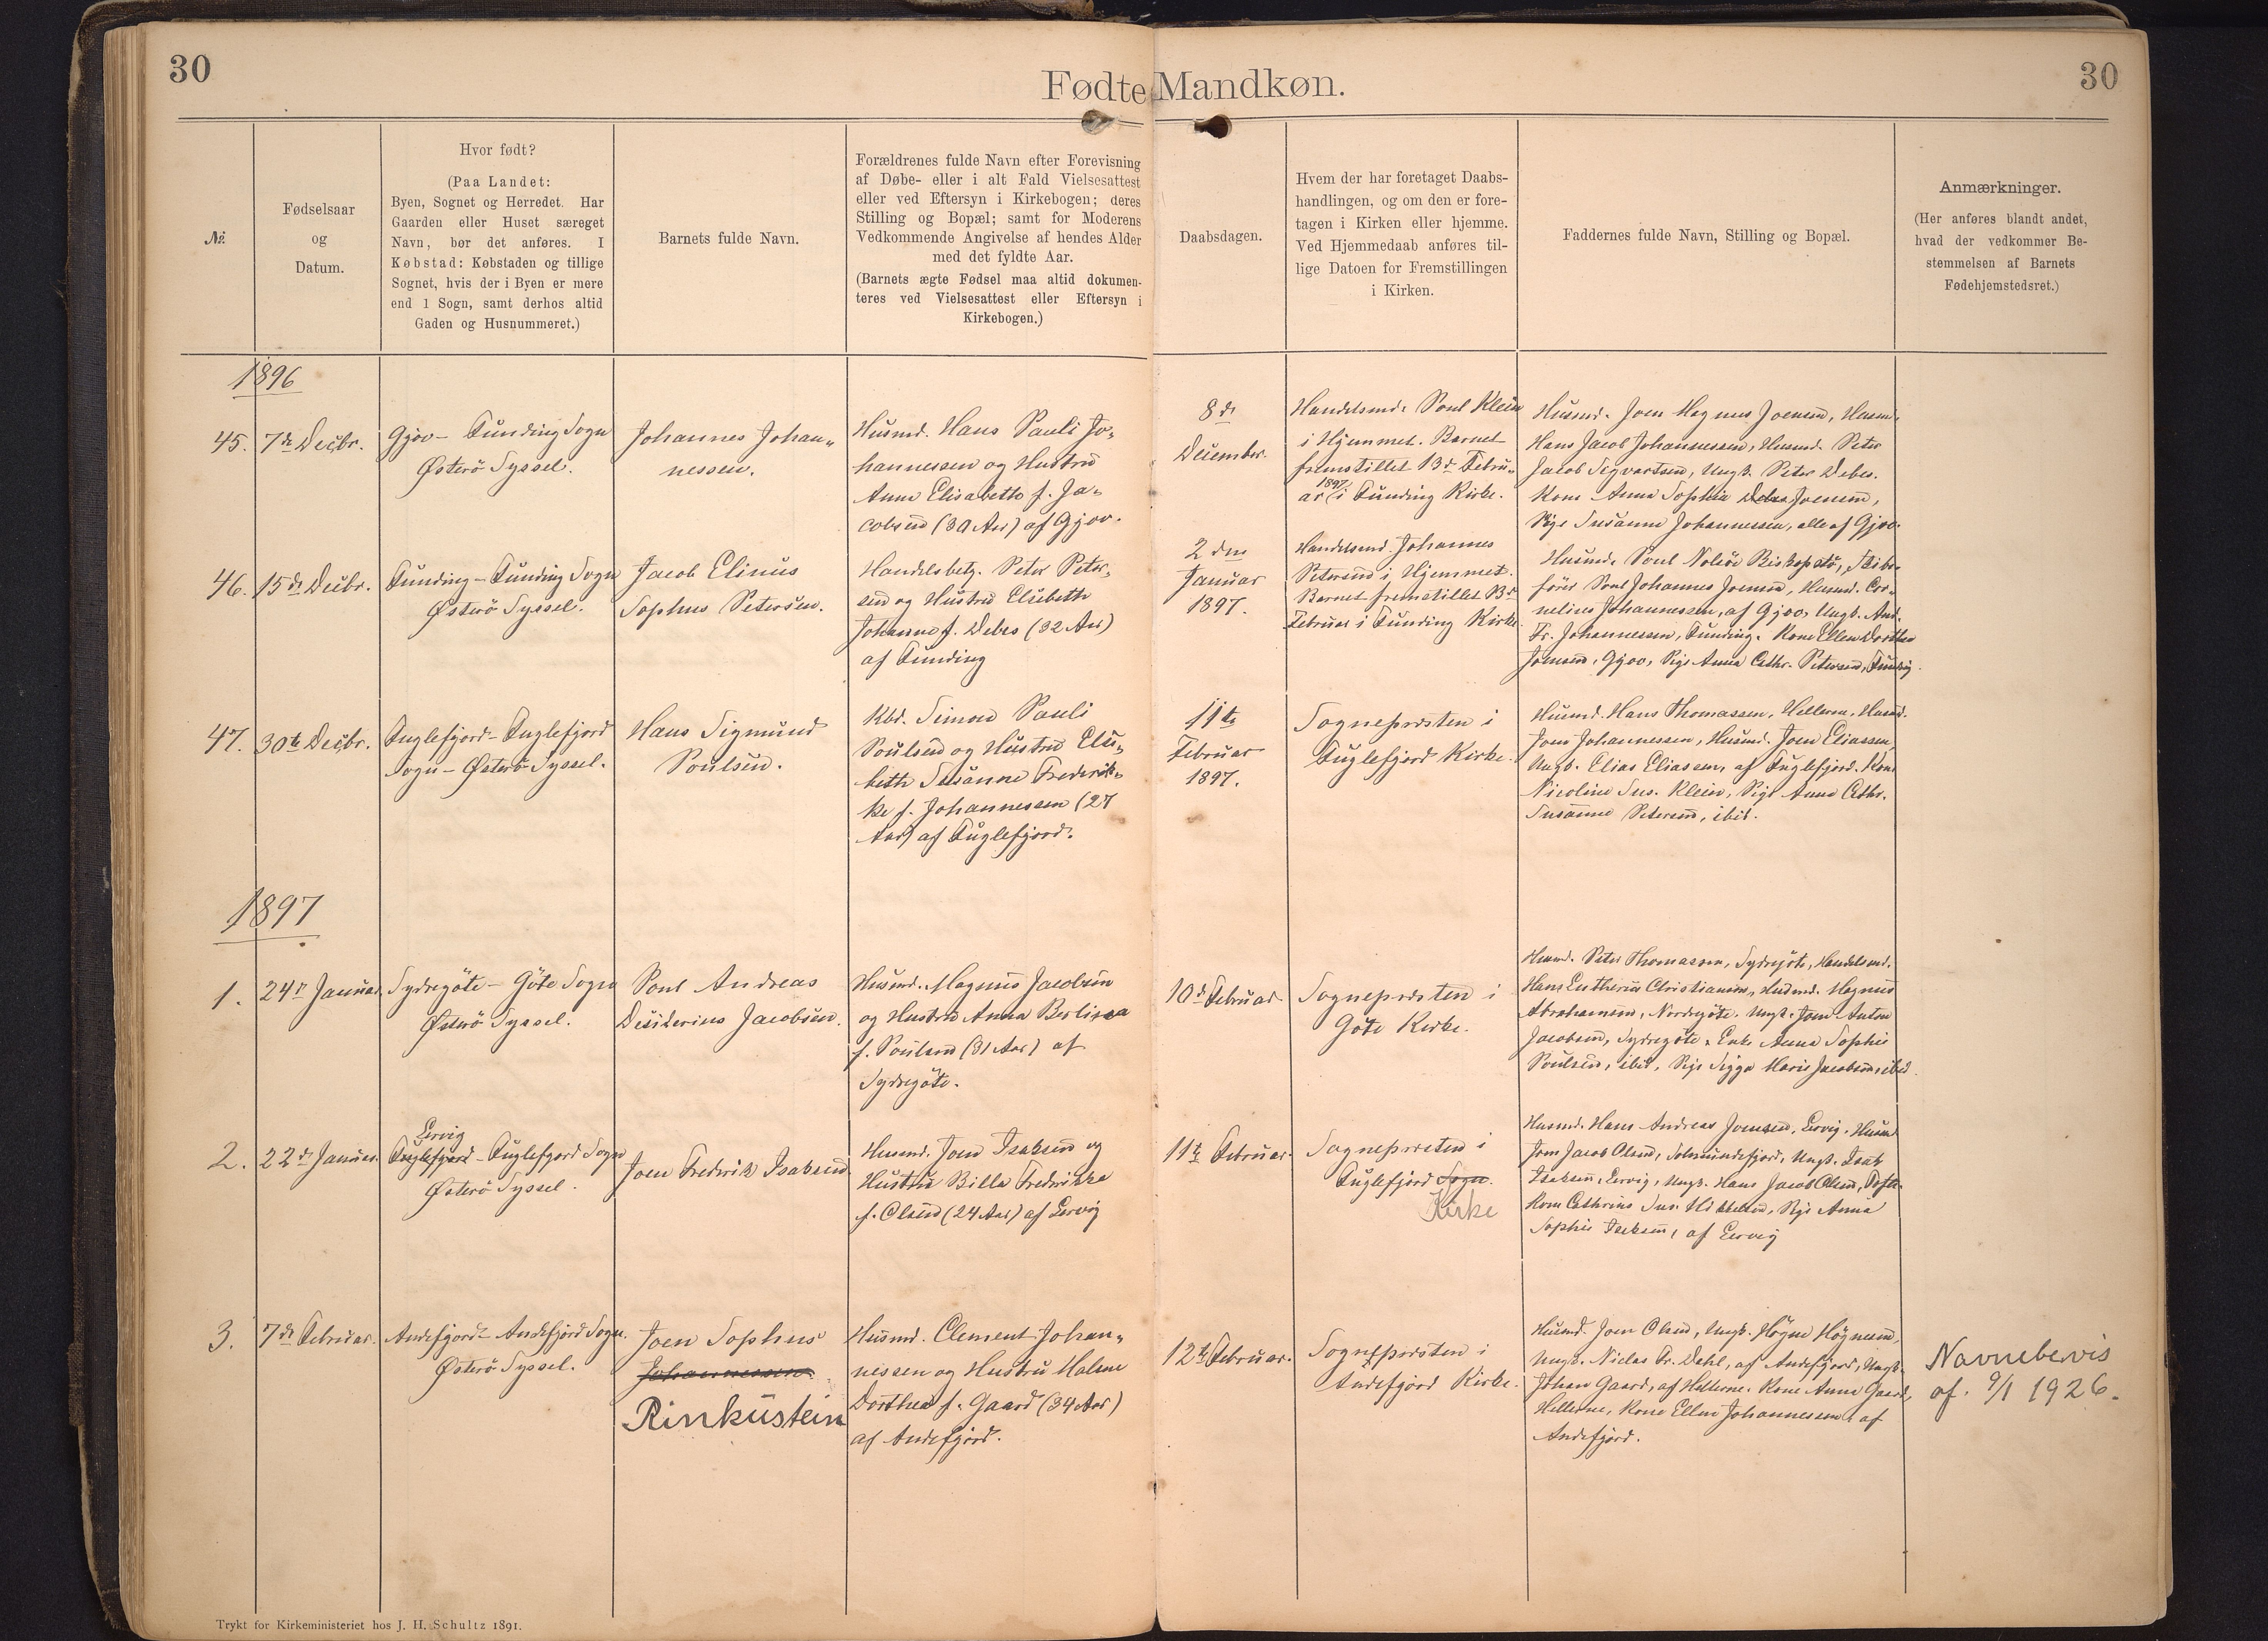 30
Fødte Mandkøn.
30
№
Fødselsaar
og
Datum.
Hvor født?
(Paa Landet:
Byen, Sognet og Herredet. Har
Gaarden eller Huset særeget
Navn, bør det anføres. I
Købstad: Købstaden og tillige
Sognet, hvis der i Byen er mere
end 1 Sogn, samt derhos altid
Gaden og Husnummeret.)
Barnets fulde Navn.
Forældrenes fulde Navn efter Forevisning
af Døbe- eller i alt Fald Vielsesattest
eller ved Eftersyn i Kirkebogen; deres
Stilling og Bopæl; samt for Moderens
Vedkommende Angivelse af hendes Alder
med det fyldte Aar.
(Barnets ægte Fødsel maa altid dokumen-
teres ved Vielsesattest eller Eftersyn i
Kirkebogen.)
Daabsdagen.
Hvem der har foretaget Daabs-
handlingen, og om den er fore-
tagen i Kirken eller hjemme.
Ved Hjemmedaab anføres til-
lige Datoen for Fremstillingen
i Kirken.
Faddernes fulde Navn, Stilling og Bopæl.
Anmærkninger.
(Her anføres blandt andet,
hvad der vedkommer Be-
stemmelsen af Barnets
Fødehjemstedsret.)
1896
45.
7de Decbr.
Gjov - Funding Sogn
Österö Syssel.
Johannes Johan„
nessen.
Husmd. Hans Pauli Jo„
hannessen og Hustru
Anna Elisabeth f. Ja„
cobsen (30 Aar) af Gjov.
8de
December.
Handelsmd. Poul Klein
i Hjemmet. Barnet
fremstillet 13de Febru„
ar 1897 i Funding Kirke.
Husmd. Joen Magnus Joensen, Husmd.
Hans Jacob Johannessen, Husmd. Peter
Jacob Sigvartsen, Ungk. Peter Debes.
Kone Anna Sophia Debes Joensen,
Pige Susanne Johannessen, alle af Gjov.
46.
15de Decbr.
Funding - Funding Sogn
Österö Syssel.
Jacob Elinus
Sophus Petersen.
Handelsbetj. Peter Peter„
sen og Hustru Elsebeth
Johanne f. Debes (32 Aar)
af Funding
2den
Januar
1897.
Handelsmd. Johannes
Petersen i Hjemmet.
Barnet fremstillet 13de
Februar i Funding Kirke.
Husmd. Poul Nolsöe Biskopstö, Skibs„
fører Poul Johannes Joensen, Husmd. Cor„
nelius Johannessen, af Gjov, Ungk. And.
Fr. Johannessen, Funding. Kone Ellen Dorthea
Joensen, Gjov, Pige Anna Cathr. Petersen, Funding.
47.
30te Decbr.
Fuglefjord - Fuglefjord
Sogn - Österö Syssel.
Hans Sigmund
Poulsen.
Kbd. Simon Pauli
Poulsen og Hustru Else„
beth Susanne Frederik„
ke f. Johannessen (27
Aar) af Fuglefjord.
11te
Februar
1897.
Sognepræsten i
Fuglefjord Kirke.
Husmd. Hans Thomassen, Hellerne, Husmd.
Joen Johannessen, Husmd. Joen Eliassen,
Ungk. Elias Eliassen, af Fuglefjord. Kone
Nicoline Sus. Klein, Pige Anna Cathr.
Susanne Petersen, ibid.
1897
1.
24de Januar.
Sydregöte - Göte Sogn
Österö Syssel.
Poul Andreas
Desiderius Jacobsen.
Husmd. Magnus Jacobsen
og Hustru Anna Berlina
f. Poulsen (31 Aar) af
Sydregöte.
10de Februar.
Sognepræsten i
Göte Kirke.
Husmd. Peter Thomassen, Sydregöte, Handelsmd.
Hans Eutherius Christiansen, Husmd. Magnus
Abrahamsen, Nordregöte. Ungk. Joen Anton
Jacobsen, Sydregöte. Enke Anna Sophie
Poulsen, ibid, Pige Sigga Marie Jacobsen ibid.
2.
22de Januar.
Lervig
Fuglefjord - Fuglefjord Sogn
Österö Syssel.
Joen Fredrik Isaksen
Husmd. Joen Isaksen og
Hustru Billa Fredrikke
f. Olsen (24 Aar) af Lervig
11te Februar.
Sognepræsten i
Fuglefjord Sogn.
Kirke
Husmd. Hans Andreas Joensen, Lervig. Husmd
Joen Jacob Olsen, Solmundefjord, Ungk. Isak
Isaksen, Lervig, Ungk. Hans Jacob Olsen,
Kone Cathrine Sus. Pige Anna
Sophie Isaksen, af Lervig
3.
7de Februar.
Andefjord - Andefjord Sogn.
Österö Syssel.
Joen Sophus
Johannessen.
Rinkustein
Husmd. Clement Johan„
nessen og Hustru Malene
Dorthea f. Gaard (34 Aar)
af Andefjord.
12te Februar.
Sognepræsten i
Andefjord Kirke.
Husmd. Joen Olsen, Ungk. Högne Högnesen,
Ungk. Niclas Fr. Dahl, af Andefjord, Ungk.
Johan Gaard, af Hellerne. Kone Anna Gaard,
Hellerne, Kone Ellen Johannessen, af
Andefjord.
Navnebevis
af. 9/1 1926.
Trykt for Kirkeministeriet hos J. H. Schultz 1891.